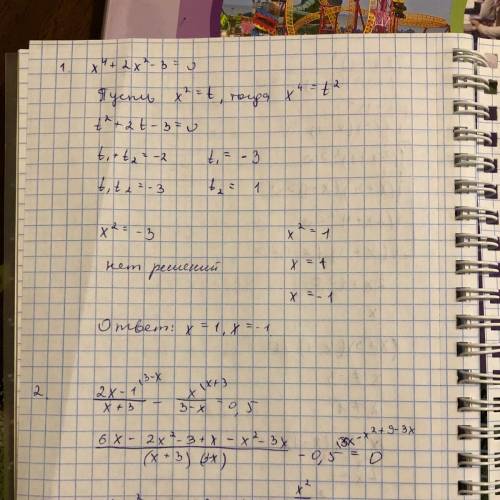 1. x⁴ + 2x² - 3 = 0
Пусть x² = t, тогда x⁴ = t²
t² + 2t - 3 = 0
t₁ + t₂ = -2 t₁ = -3
t₁ t₂ = -3 t₂ = 1
x² = -3 x² = 1
нет решений x = 1
x = -1
Ответ: x = 1, x = -1
2. (2x - 1)/(x + 3) \ 3-x - x/(3-x) \ x+3 = 0,5
(6x - 2x² - 3 + x - x² - 3x)/((x + 3)(3-x)) - 0,5 \ 3x - x² + 9 - 3x = 0
x²